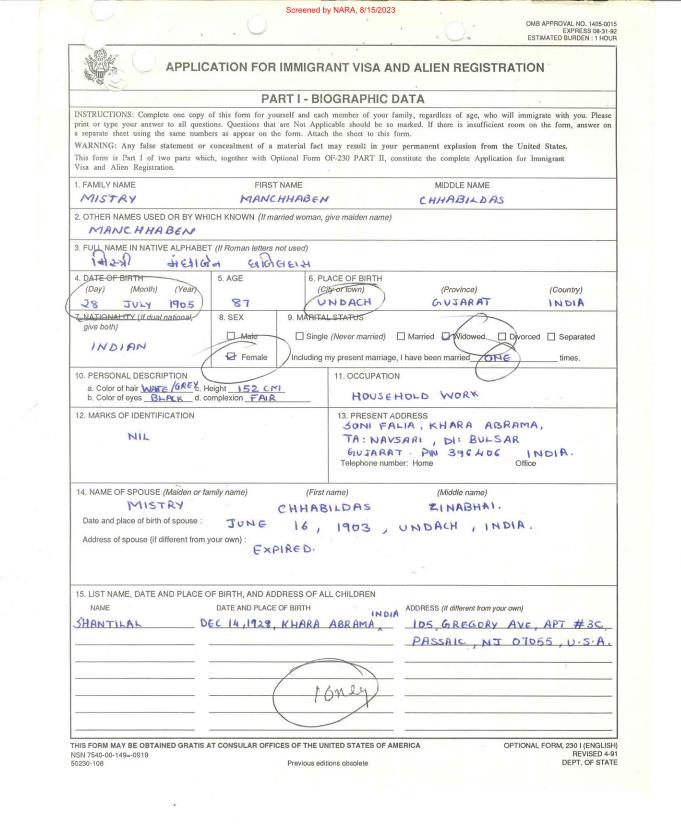 Screened by NARA, 8/15/2023
OMB APPROVAL NO. 1405-0015
EXPRESS 08-31-92
ESTIMATED BURDEN : 1 HOUR
APPLICATION FOR IMMIGRANT VISA AND ALIEN REGISTRATION
PART I - BIOGRAPHIC DATA
INSTRUCTIONS: Complete one copy of this form for yourself and each member of your family, regardless of age, who will immigrate with you. Please
print or type your answer to all questions. Questions that are Not Applicable should be so marked. If there is insufficient room on the form, answer on
a separate sheet using the same numbers as appear on the form. Attach the sheet to this form.
WARNING: Any false statement or concealment of a material fact may result in your permanent explusion from the United States.
This form is Part I of two parts which, together with Optional Form OF-230 PART II, constitute the complete Application for Immigrant
Visa and Alien Registration.
1. FAMILY NAME FIRST NAME MIDDLE NAME
MISTRY MANCHHABEN CHHABILDAS
2. OTHER NAMES USED OR BY WHICH KNOWN (If married woman, give maiden name)
MANCHHABEN
3. FULL NAME IN NATIVE ALPHABET (If Roman letters not used)
મિસ્ત્રી મંછાબેન છબિલદાસ
4. DATE OF BIRTH 5. AGE 6. PLACE OF BIRTH
(Day) (Month) (Year) (City or town) (Province) (Country)
28 JULY 1905 87 UNDACH GUJARAT INDIA
7. NATIONALITY (If dual national, give both) 8. SEX 9. MARITAL STATUS
INDIAN
Male Single (Never married) Married Widowed Divorced Separated
Female Including my present marriage, I have been married ONE times.
10. PERSONAL DESCRIPTION 11. OCCUPATION
a. Color of hair WHITE/GREY c. Height 152 CM
b. Color of eyes BLACK d. complexion FAIR
HOUSEHOLD WORK
12. MARKS OF IDENTIFICATION
NIL
13. PRESENT ADDRESS
SONI FALIA, KHARA ABRAMA,
TA: NAVSARI, DI: BULSAR
GUJARAT. PIN 396406 INDIA.
Telephone number: Home Office
14. NAME OF SPOUSE (Maiden or family name) (First name) (Middle name)
MISTRY CHHABILDAS ZINABHAI.
Date and place of birth of spouse : JUNE 16, 1903, UNDACH, INDIA.
Address of spouse (if different from your own) :
EXPIRED.
15. LIST NAME, DATE AND PLACE OF BIRTH, AND ADDRESS OF ALL CHILDREN
NAME DATE AND PLACE OF BIRTH ADDRESS (If different from your own)
SHANTILAL DEC 14, 1928, KHARA ABRAMA, INDIA 105, GREGORY AVE, APT #3C,
PASSAIC, NJ 07055, U.S.A.
1 only
THIS FORM MAY BE OBTAINED GRATIS AT CONSULAR OFFICES OF THE UNITED STATES OF AMERICA
NSN 7540-00-149-0919
50230-108
Previous editions obsolete
OPTIONAL FORM, 230 I (ENGLISH)
REVISED 4-91
DEPT. OF STATE